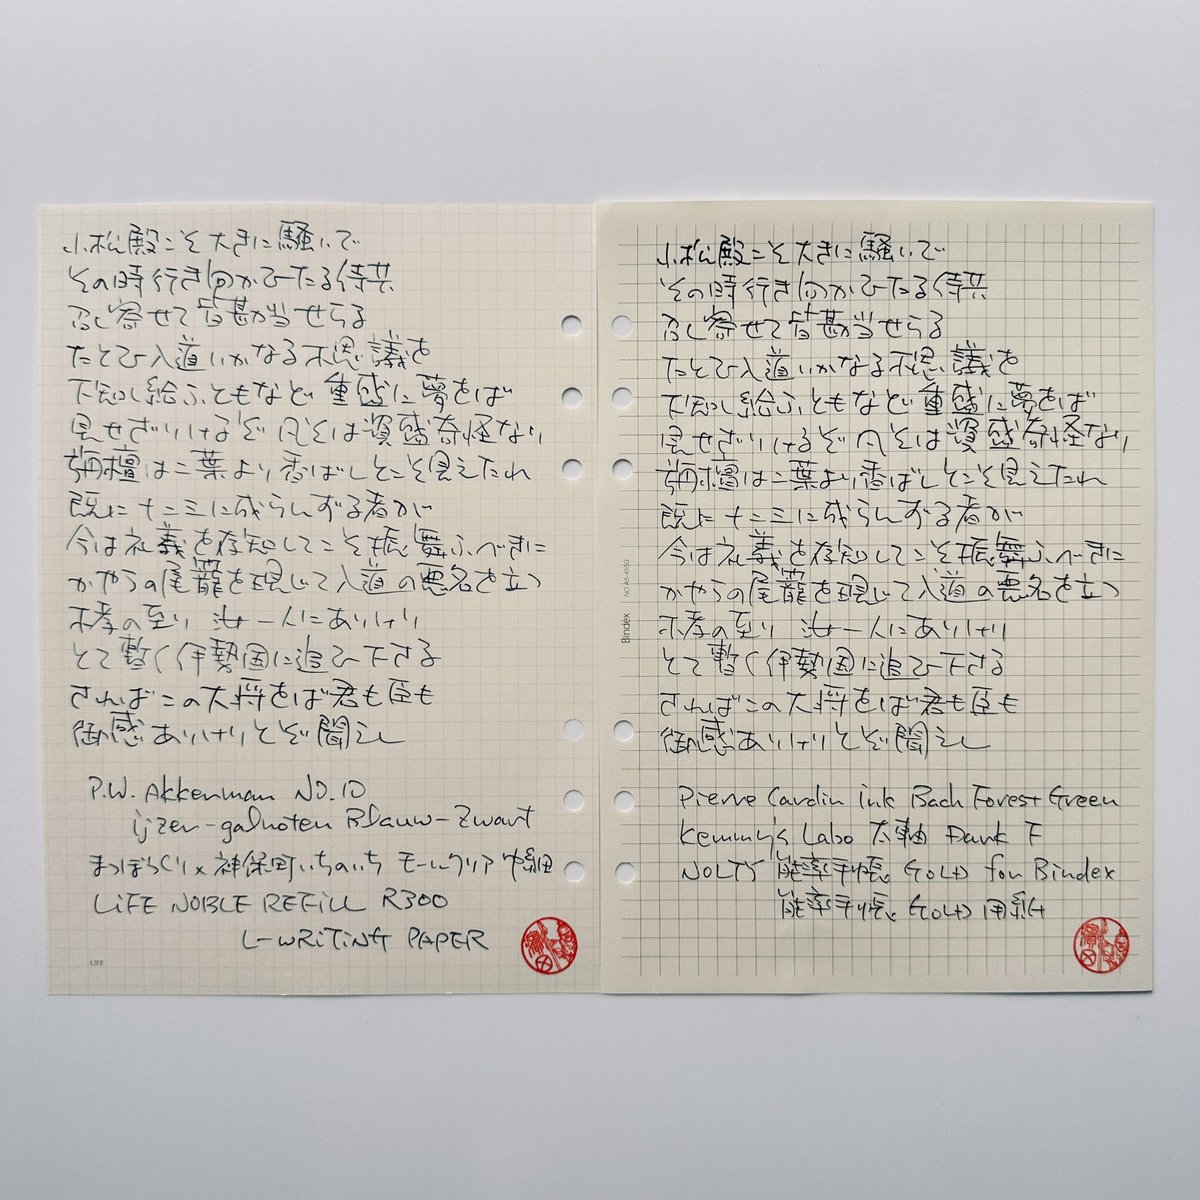 小松殿こそ大きに騒いで
その時行き向かひたる侍共
召し寄せて皆勘当せらる
たとひ入道いかなる不思議を
下知し給ふともなど重盛に夢をば
見せざりけるぞ凡そは資盛奇怪なり
栴檀は二葉より香ばしとこそ見えたれ
既に十二三に成らんずる者が
今は礼義を存知してこそ振舞ふべきに
かやうの尾籠を現じて入道の悪名を立つ
不孝の至り 汝一人にありけり
とて暫く伊勢国に追ひ下さる
さればこの大将をば君も臣も
御感ありけりとぞ聞えし
P.W. Akkerman NO.10
ijzer-galnoten Blauw-Zwart
まつぼっくり×神保町いちのいち モールクリア 中細
LIFE NOBLE REFILL R300
L-WRITING PAPER
LIFE
小松殿こそ大きに騒いで
その時行き向かひたる侍共
召し寄せて皆勘当せらる
たとひ入道いかなる不思議を
下知し給ふともなど重盛に夢をば
見せざりけるぞ凡そは資盛奇怪なり
栴檀は二葉より香ばしとこそ見えたれ
既に十二三に成らんずる者が
今は礼義を存知してこそ振舞ふべきに
かやうの尾籠を現じて入道の悪名を立つ
不孝の至り 汝一人にありけり
とて暫く伊勢国に追ひ下さる
さればこの大将をば君も臣も
御感ありけりとぞ聞えし
Pierre Cardin ink Bach Forest Green
Kemmy's Labo 太軸 Dark F
NOLTY 能率手帳 GOLD for Bindex
能率手帳 GOLD 用紙
Bindex